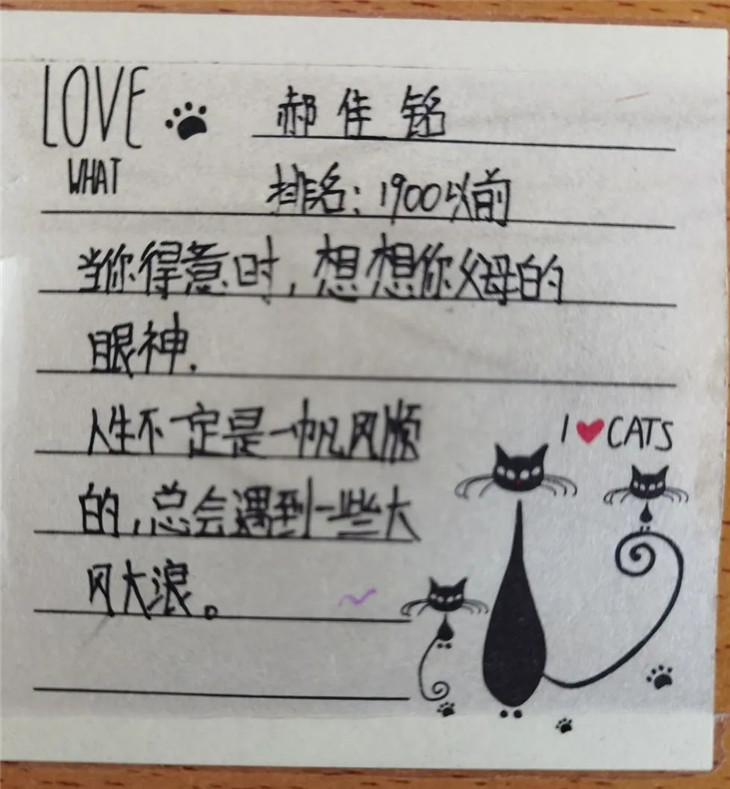 LOVE 郝佳铭
WHAT 排名：1900以前
当你得意时，想想你父母的
眼神.
人生不一定是一帆风顺
I CATS
的，总会遇到一些大
风大浪。